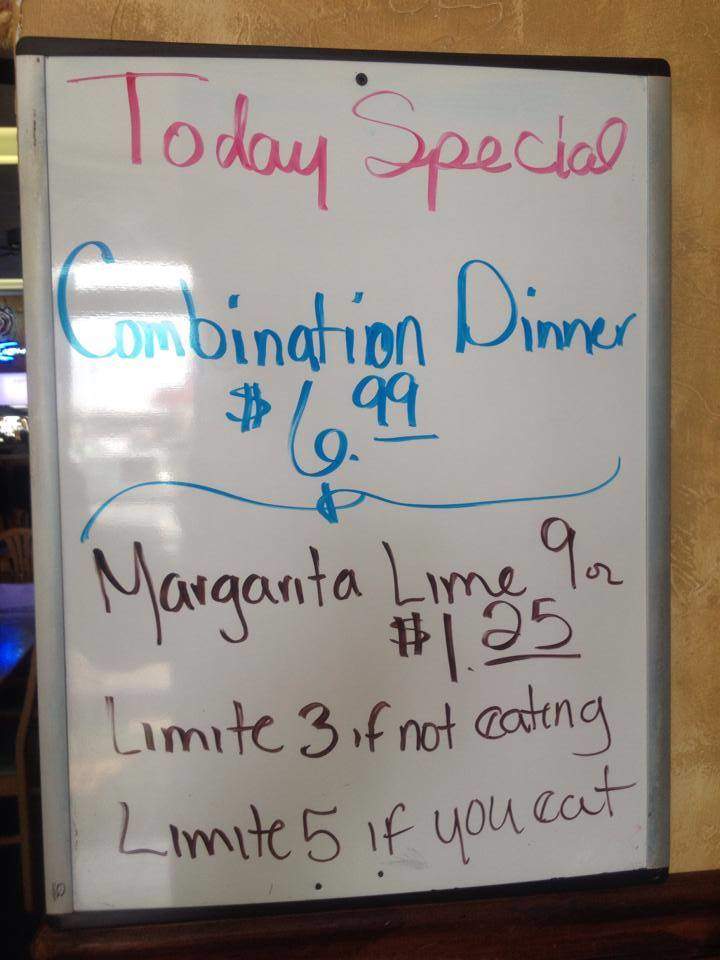 Today Special
Combination Dinner
$6.99
Margarita Lime 9oz
$1.25
Limite 3 if not eating
Limite 5 if you eat